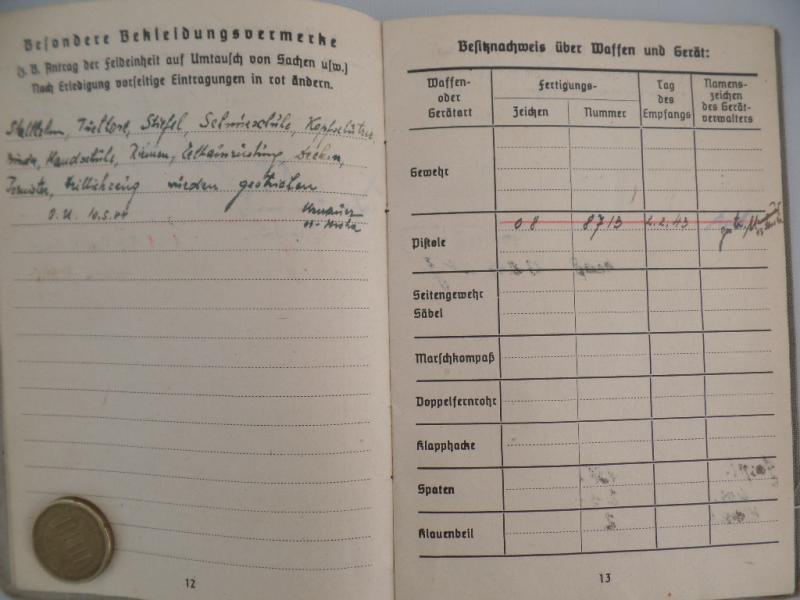 Besondere Bekleidungsvermerke
(z. B. Antrag der Feldeinheit auf Umtausch von Sachen usw.)
Nach Erledigung vorseitige Eintragungen in rot ändern.
Stahlhelm, Stiefel, Schnürschuhe,
Handschuhe, Riemen, Decken,
Tornister, wurden gestrichen
O.U. 10.5.44
12
Besitznachweis über Waffen und Gerät:
Waffen- oder Gerätart
Fertigungs-
Zeichen
Nummer
Tag des Empfangs
Namens-zeichen des Gerät-verwalters
Gewehr
Pistole 08 8713 2.2.43
Seitengewehr
Säbel
Marschkompaß
Doppelfernrohr
Klapphacke
Spaten
Klauenbeil
13